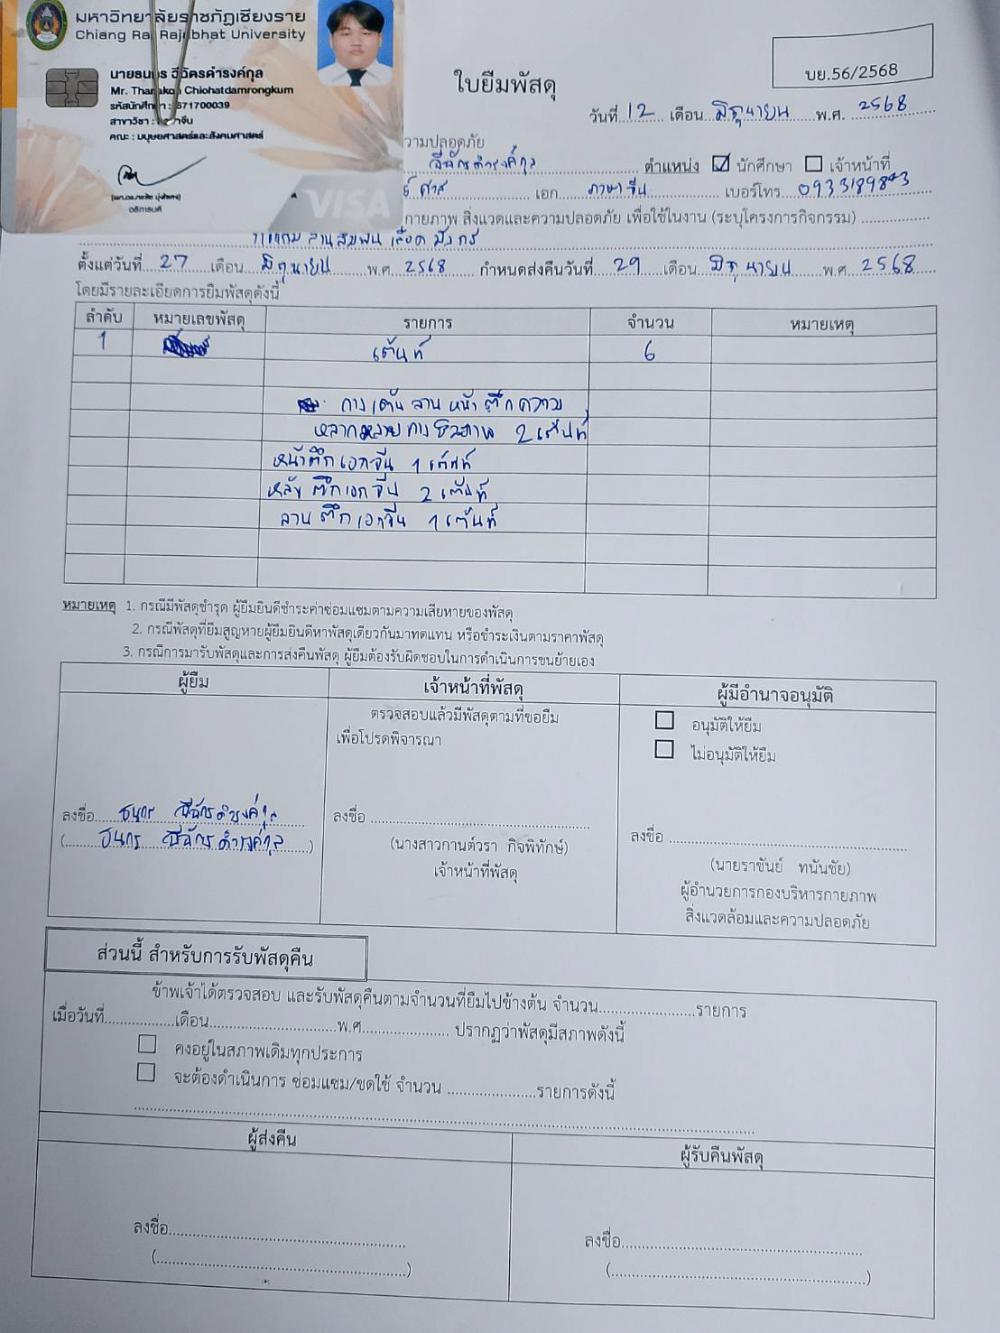 มหาวิทยาลัยราชภัฏเชียงราย
Chiang Rai Rajabhat University
นายธนกร ฉัตรดำรงค์กุล
Mr. Thanakon Chichatdamrongkum
รหัสนักศึกษา : 671700039
สาขาวิชา :
คณะ : มนุษยศาสตร์และสังคมศาสตร์
อธิการบดี
VISA
บย.56/2568
ใบยืมพัสดุ
วันที่ 12 เดือน มิถุนายน พ.ศ. 2568
ความปลอดภัย
ตำแหน่ง ☑ นักศึกษา ☐ เจ้าหน้าที่
เอก ภาษาจีน เบอร์โทร
กายภาพ สิ่งแวดและความปลอดภัย เพื่อใช้ในงาน (ระบุโครงการกิจกรรม)
ตั้งแต่วันที่ 27 เดือน มิถุนายน พ.ศ. 2568 กำหนดส่งคืนวันที่ 29 เดือน มิถุนายน พ.ศ. 2568
โดยมีรายละเอียดการยืมพัสดุดังนี้
ลำดับ หมายเลขพัสดุ รายการ จำนวน หมายเหตุ
1 เต้นท์ 6
กางเต้น ลาน หน้า ตึกความ
หลากหลายทางชีวภาพ 2 เต้นท์
หน้าตึกเอกจีน 1 เต้นท์
หลังตึกเอกจีน 2 เต้นท์
ลานตึกเอกจีน 1 เต้นท์
หมายเหตุ 1. กรณีมีพัสดุชำรุด ผู้ยืมยินดีชำระค่าซ่อมแซมตามความเสียหายของพัสดุ
2. กรณีพัสดุที่ยืมสูญหายผู้ยืมยินดีหาพัสดุเดียวกันมาทดแทน หรือชำระเงินตามราคาพัสดุ
3. กรณีการมารับพัสดุและการส่งคืนพัสดุ ผู้ยืมต้องรับผิดชอบในการดำเนินการขนย้ายเอง
ผู้ยืม เจ้าหน้าที่พัสดุ ผู้มีอำนาจอนุมัติ
ตรวจสอบแล้วมีพัสดุตามที่ขอยืม
เพื่อโปรดพิจารณา
☐ อนุมัติให้ยืม
☐ ไม่อนุมัติให้ยืม
ลงชื่อ ธนกร
(ธนกร)
ลงชื่อ
(นางสาวกานต์วรา กิจพิทักษ์)
เจ้าหน้าที่พัสดุ
ลงชื่อ
(นายราชันย์ ทนันชัย)
ผู้อำนวยการกองบริหารกายภาพ
สิ่งแวดล้อมและความปลอดภัย
ส่วนนี้ สำหรับการรับพัสดุคืน
ข้าพเจ้าได้ตรวจสอบ และรับพัสดุคืนตามจำนวนที่ยืมไปข้างต้น จำนวน รายการ
เมื่อวันที่ เดือน พ.ศ. ปรากฏว่าพัสดุมีสภาพดังนี้
☐ คงอยู่ในสภาพเดิมทุกประการ
☐ จะต้องดำเนินการ ซ่อมแซม/ชดใช้ จำนวน รายการดังนี้
ผู้ส่งคืน ผู้รับคืนพัสดุ
ลงชื่อ ลงชื่อ